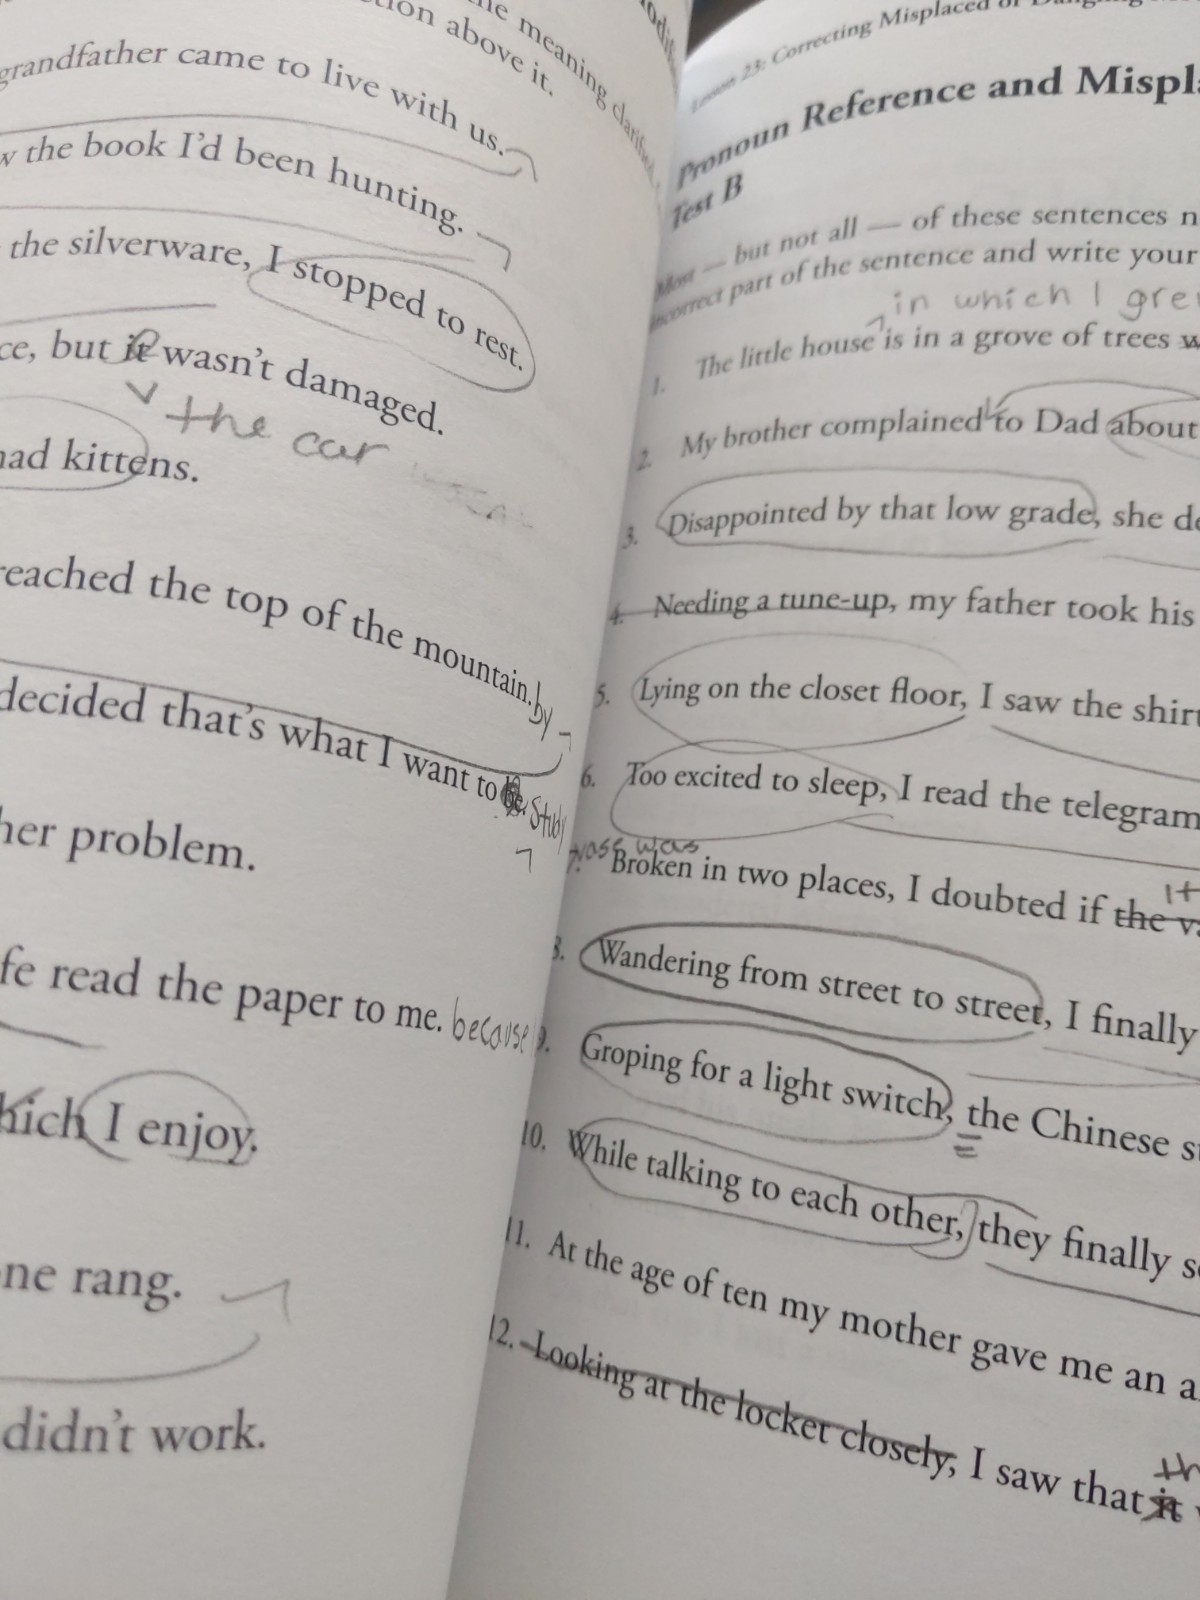 the meaning clarified
tion above it.
grandfather came to live with us.
w the book I'd been hunting.
the silverware, I stopped to rest.
ce, but it wasn't damaged.
the car
had kittens.
reached the top of the mountain. by
decided that's what I want to be. study
her problem.
fe read the paper to me. because
hich I enjoy.
one rang.
didn't work.
Lesson 23: Correcting Misplaced or Dangling
Pronoun Reference and Mispla
Test B
Most — but not all — of these sentences n
incorrect part of the sentence and write your
in which I grew
1. The little house is in a grove of trees w
2. My brother complained to Dad about
3. Disappointed by that low grade, she de
4. Needing a tune-up, my father took his
5. Lying on the closet floor, I saw the shirt
6. Too excited to sleep, I read the telegram
was
it
7. Broken in two places, I doubted if the va
8. Wandering from street to street, I finally
9. Groping for a light switch, the Chinese s
10. While talking to each other, they finally s
11. At the age of ten my mother gave me an a
th
12. Looking at the locket closely, I saw that it